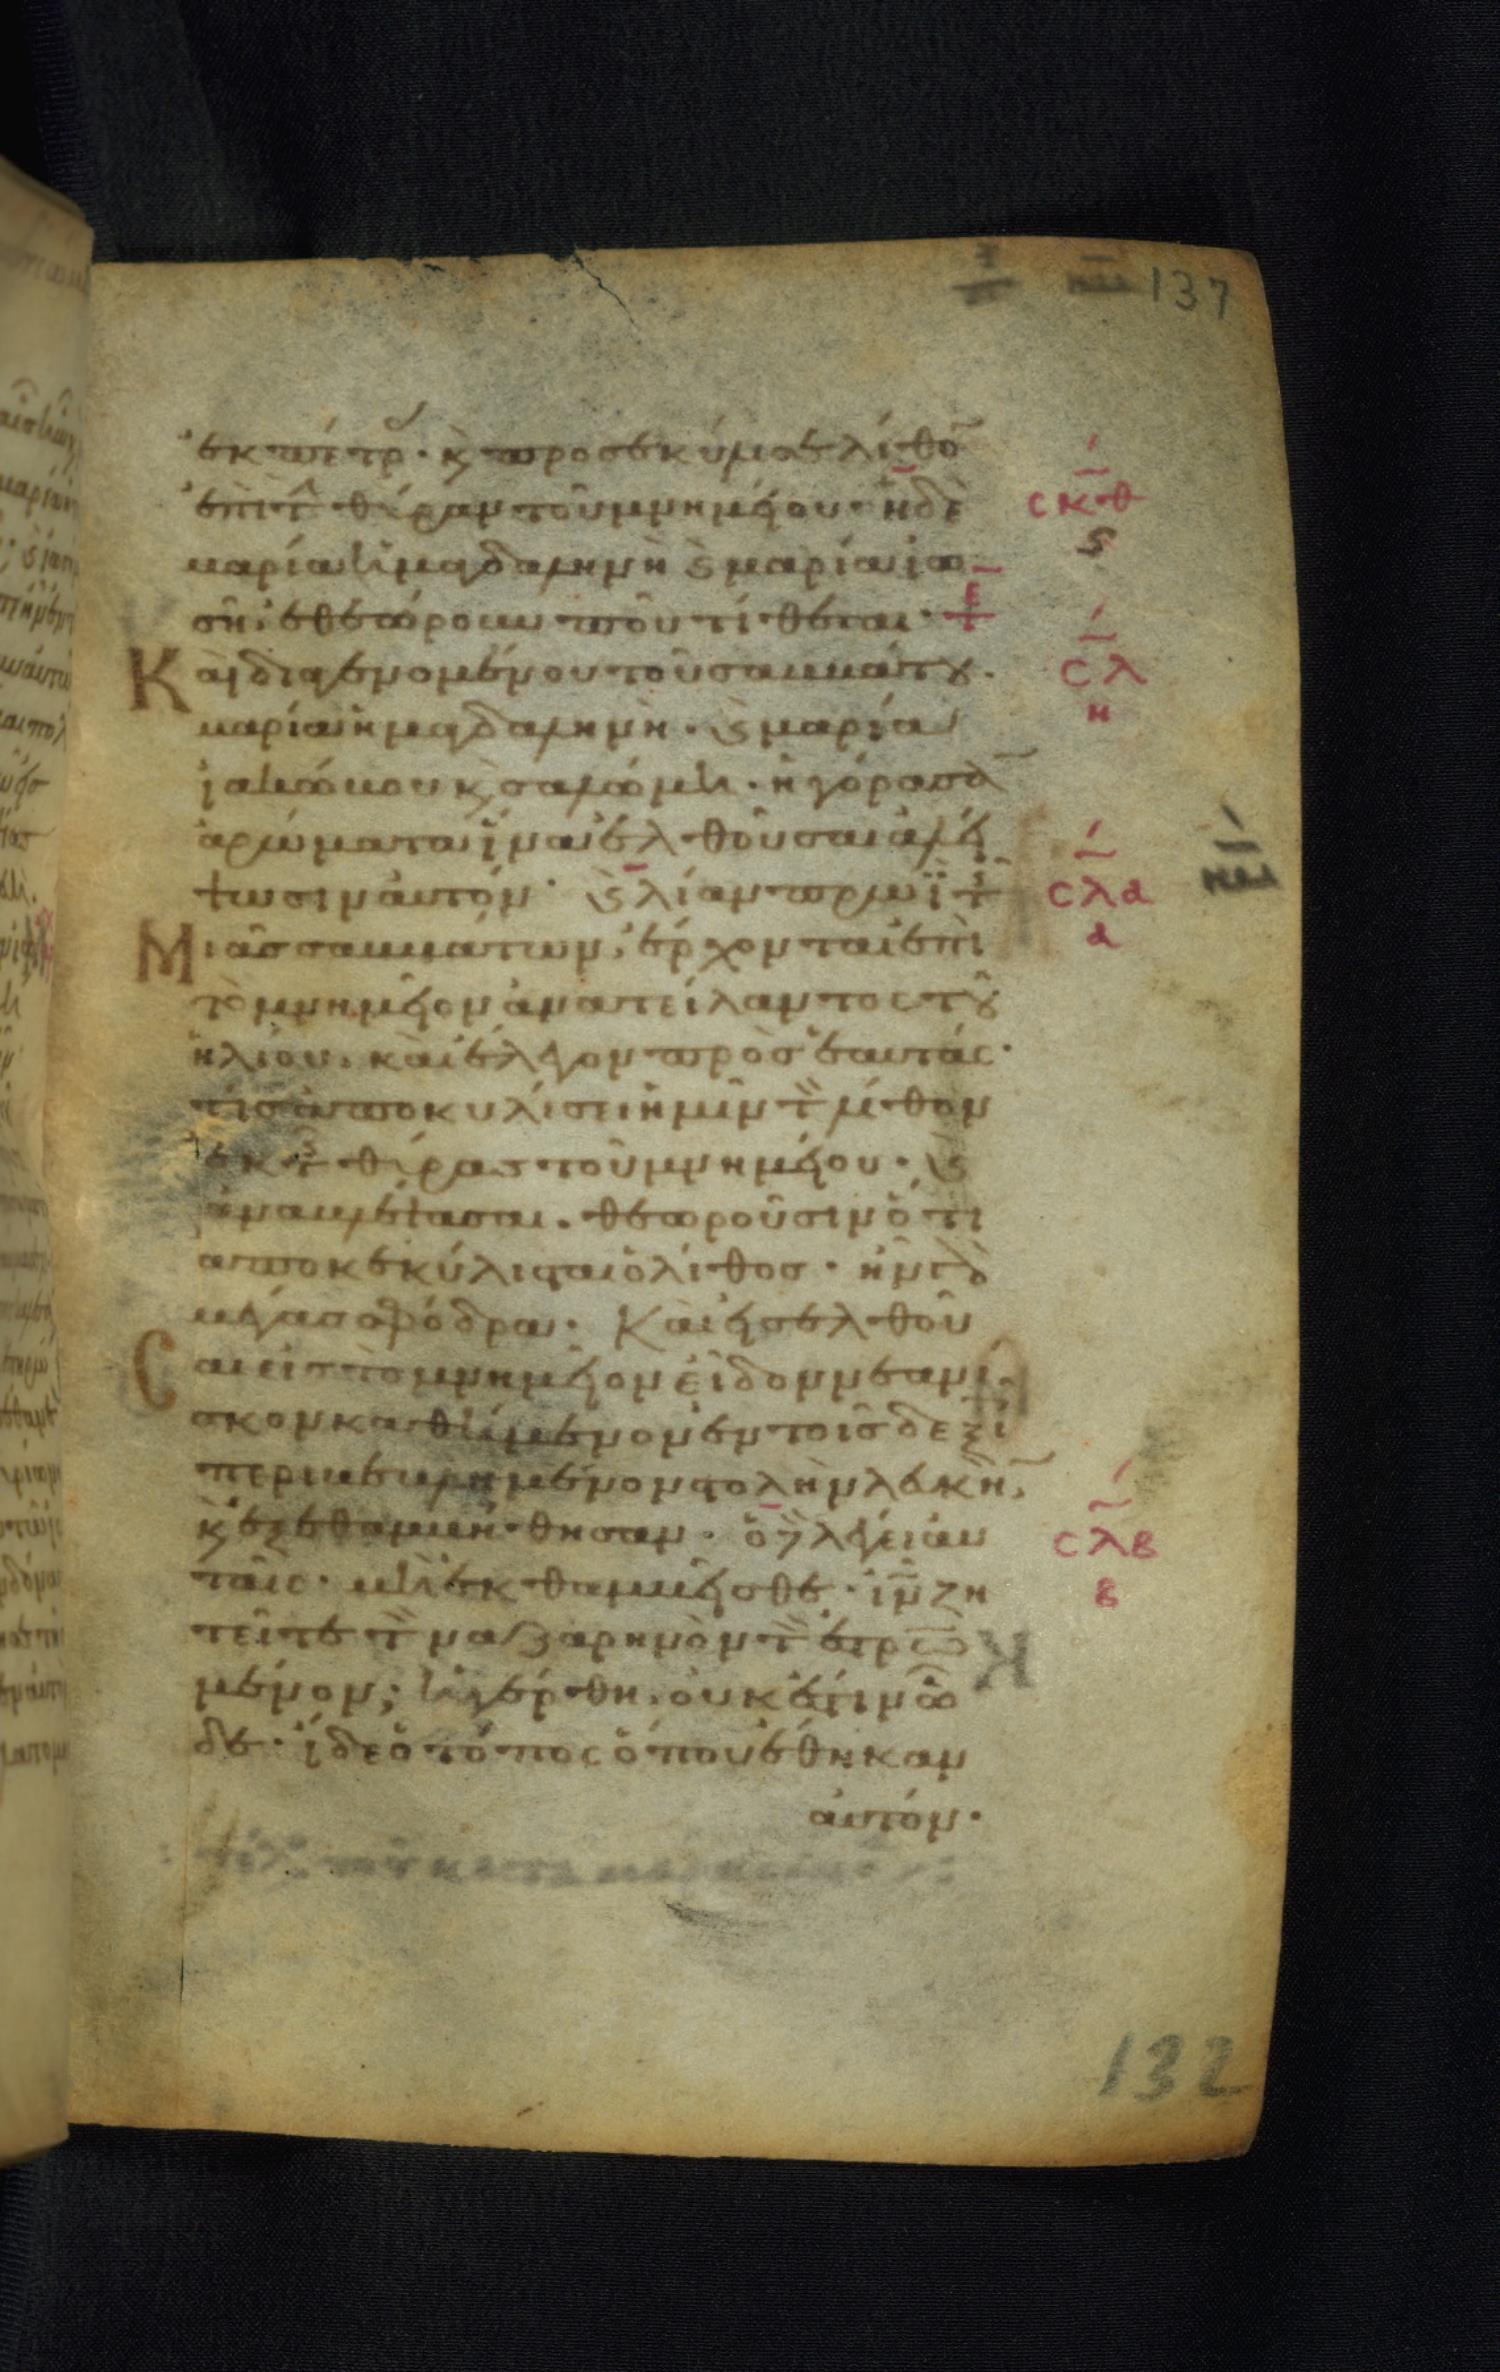 137
ἐκ πέτρ. κ προσεκύλισε λίθο
ἐπὶ τ θύραν τοῦ μνημείου· ἡ δὲ
μαρία ἡ μαγδαληνὴ κ μαρία ἰω
σῆ· ἐθεώρουν ποῦ τίθεται·
Καὶ διαγενομένου τοῦ σαββάτου.
μαρία ἡ μαγδαληνὴ· κ μαρία
ἰακώβου κ σαλώμη· ἠγόρασα
ἀρώματα ἵνα ἐλθοῦσαι ἀλεί
ψωσιν αὐτόν· κ λίαν πρωῒ τ
Μιᾶς σαββάτων, ἔρχονται ἐπὶ
τὸ μνημεῖον ἀνατείλαντος τοῦ
ἡλίου. καὶ ἔλεγον πρὸς ἑαυτάς·
τίς ἀποκυλίσει ἡμῖν τ λίθον
ἐκ τ θύρας τοῦ μνημείου· κ
ἀναβλέψασαι. θεωροῦσιν ὅτι
ἀποκεκύλισται ὁ λίθος· ἦν γ
μέγας σφόδρα· Καὶ εἰσελθοῦ
Σαι εἰς τὸ μνημεῖον εἶδον νεανί
σκον καθήμενον ἐν τοῖς δεξι
περιβεβλημένον στολὴν λευκὴ,
κ ἐξεθαμβήθησαν· ὁ δ λέγει αὐ
ταῖς· μὴ ἐκθαμβεῖσθε· ἰν ζη
τεῖτε τ ναζαρηνὸν τ ἐσταυρω
μένον; ἠγέρθη. οὐκ ἔστιν ὧ
δε· ἴδε ὁ τόπος ὅπου ἔθηκαν
αὐτόν·
σκθ
ς
σλ
η
σλα
α
σλβ
β
132